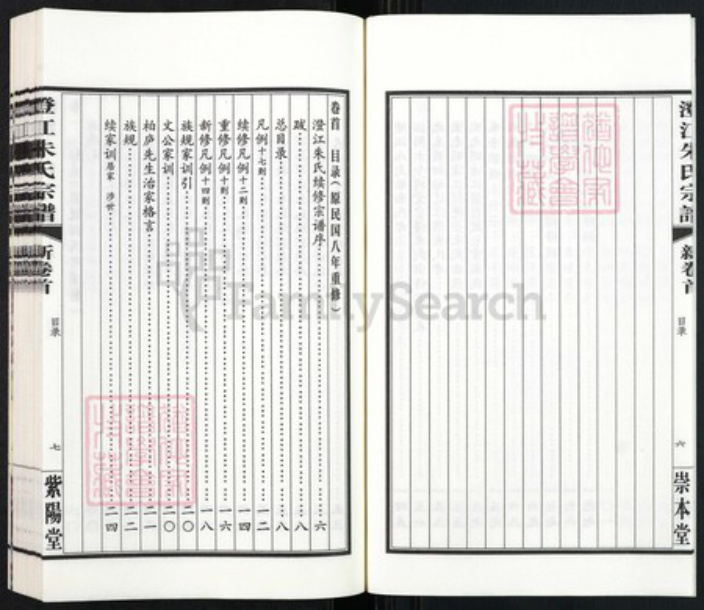 澄江朱氏宗譜
新卷首
目录
六
崇本堂
猶他家
譜學會
珍藏
卷首 目录（原民国八年重修）
澄江朱氏续修宗谱序……六
跋……八
总目录……八
凡例十七则……一二
续修凡例十二则……一四
重修凡例十则……一六
新修凡例十四则……一八
族规家训引……二〇
文公家训……二〇
柏庐先生治家格言……二一
族规……二二
续家训居家 涉世……二四
猶他家
譜學會
珍藏
澄江朱氏宗譜
新卷首
目录
七
紫陽堂
FamilySearch